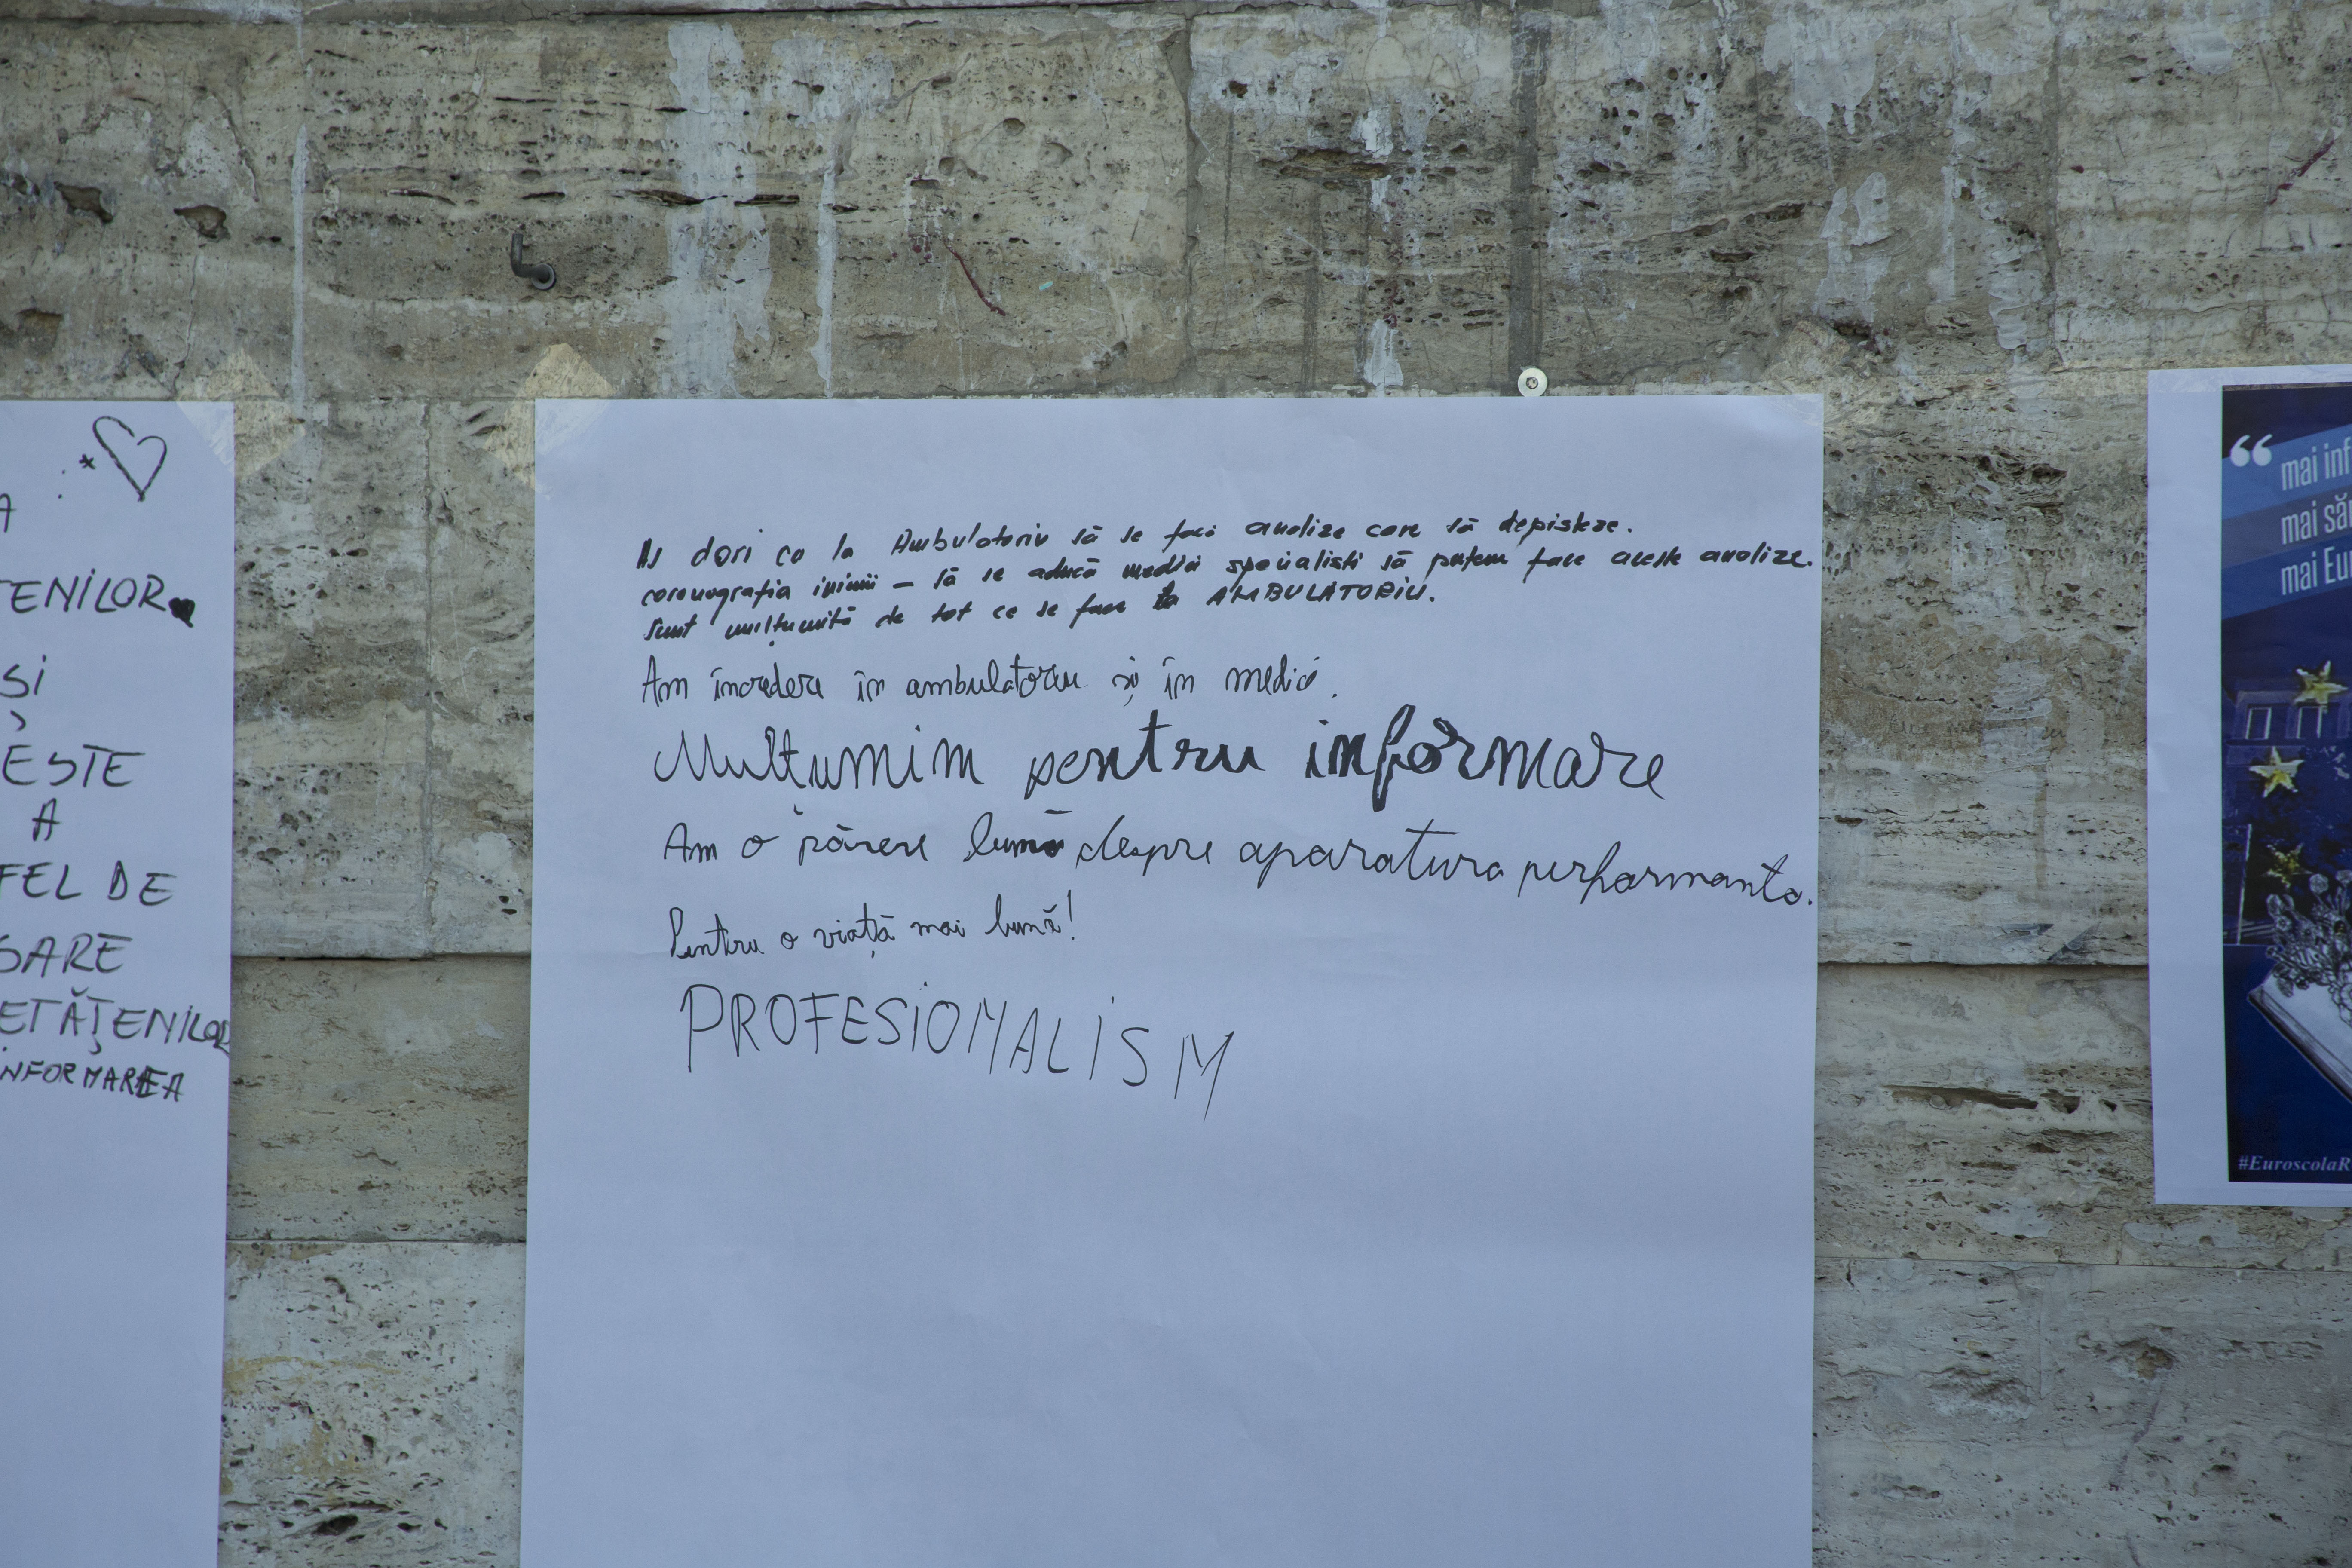 A
TENILOR
ȘI
ESTE
A
FEL DE
SARE
ETĂȚENILOR
INFORMAREA
Aș dori ca la Ambulatoriu să se facă analize care să depisteze.
coronografia inimii – să se aducă medici specialisti să putem face aceste analize.
Sunt mulțumită de tot ce se face la AMBULATORIU.
Am încredere în ambulatoriu și în medici.
Mulțumim pentru informare
Am o părere bună despre aparatura performanta.
Pentru o viață mai bună!
PROFESIONALISM
“ mai inf
mai să
mai Eu
#EuroscolaR